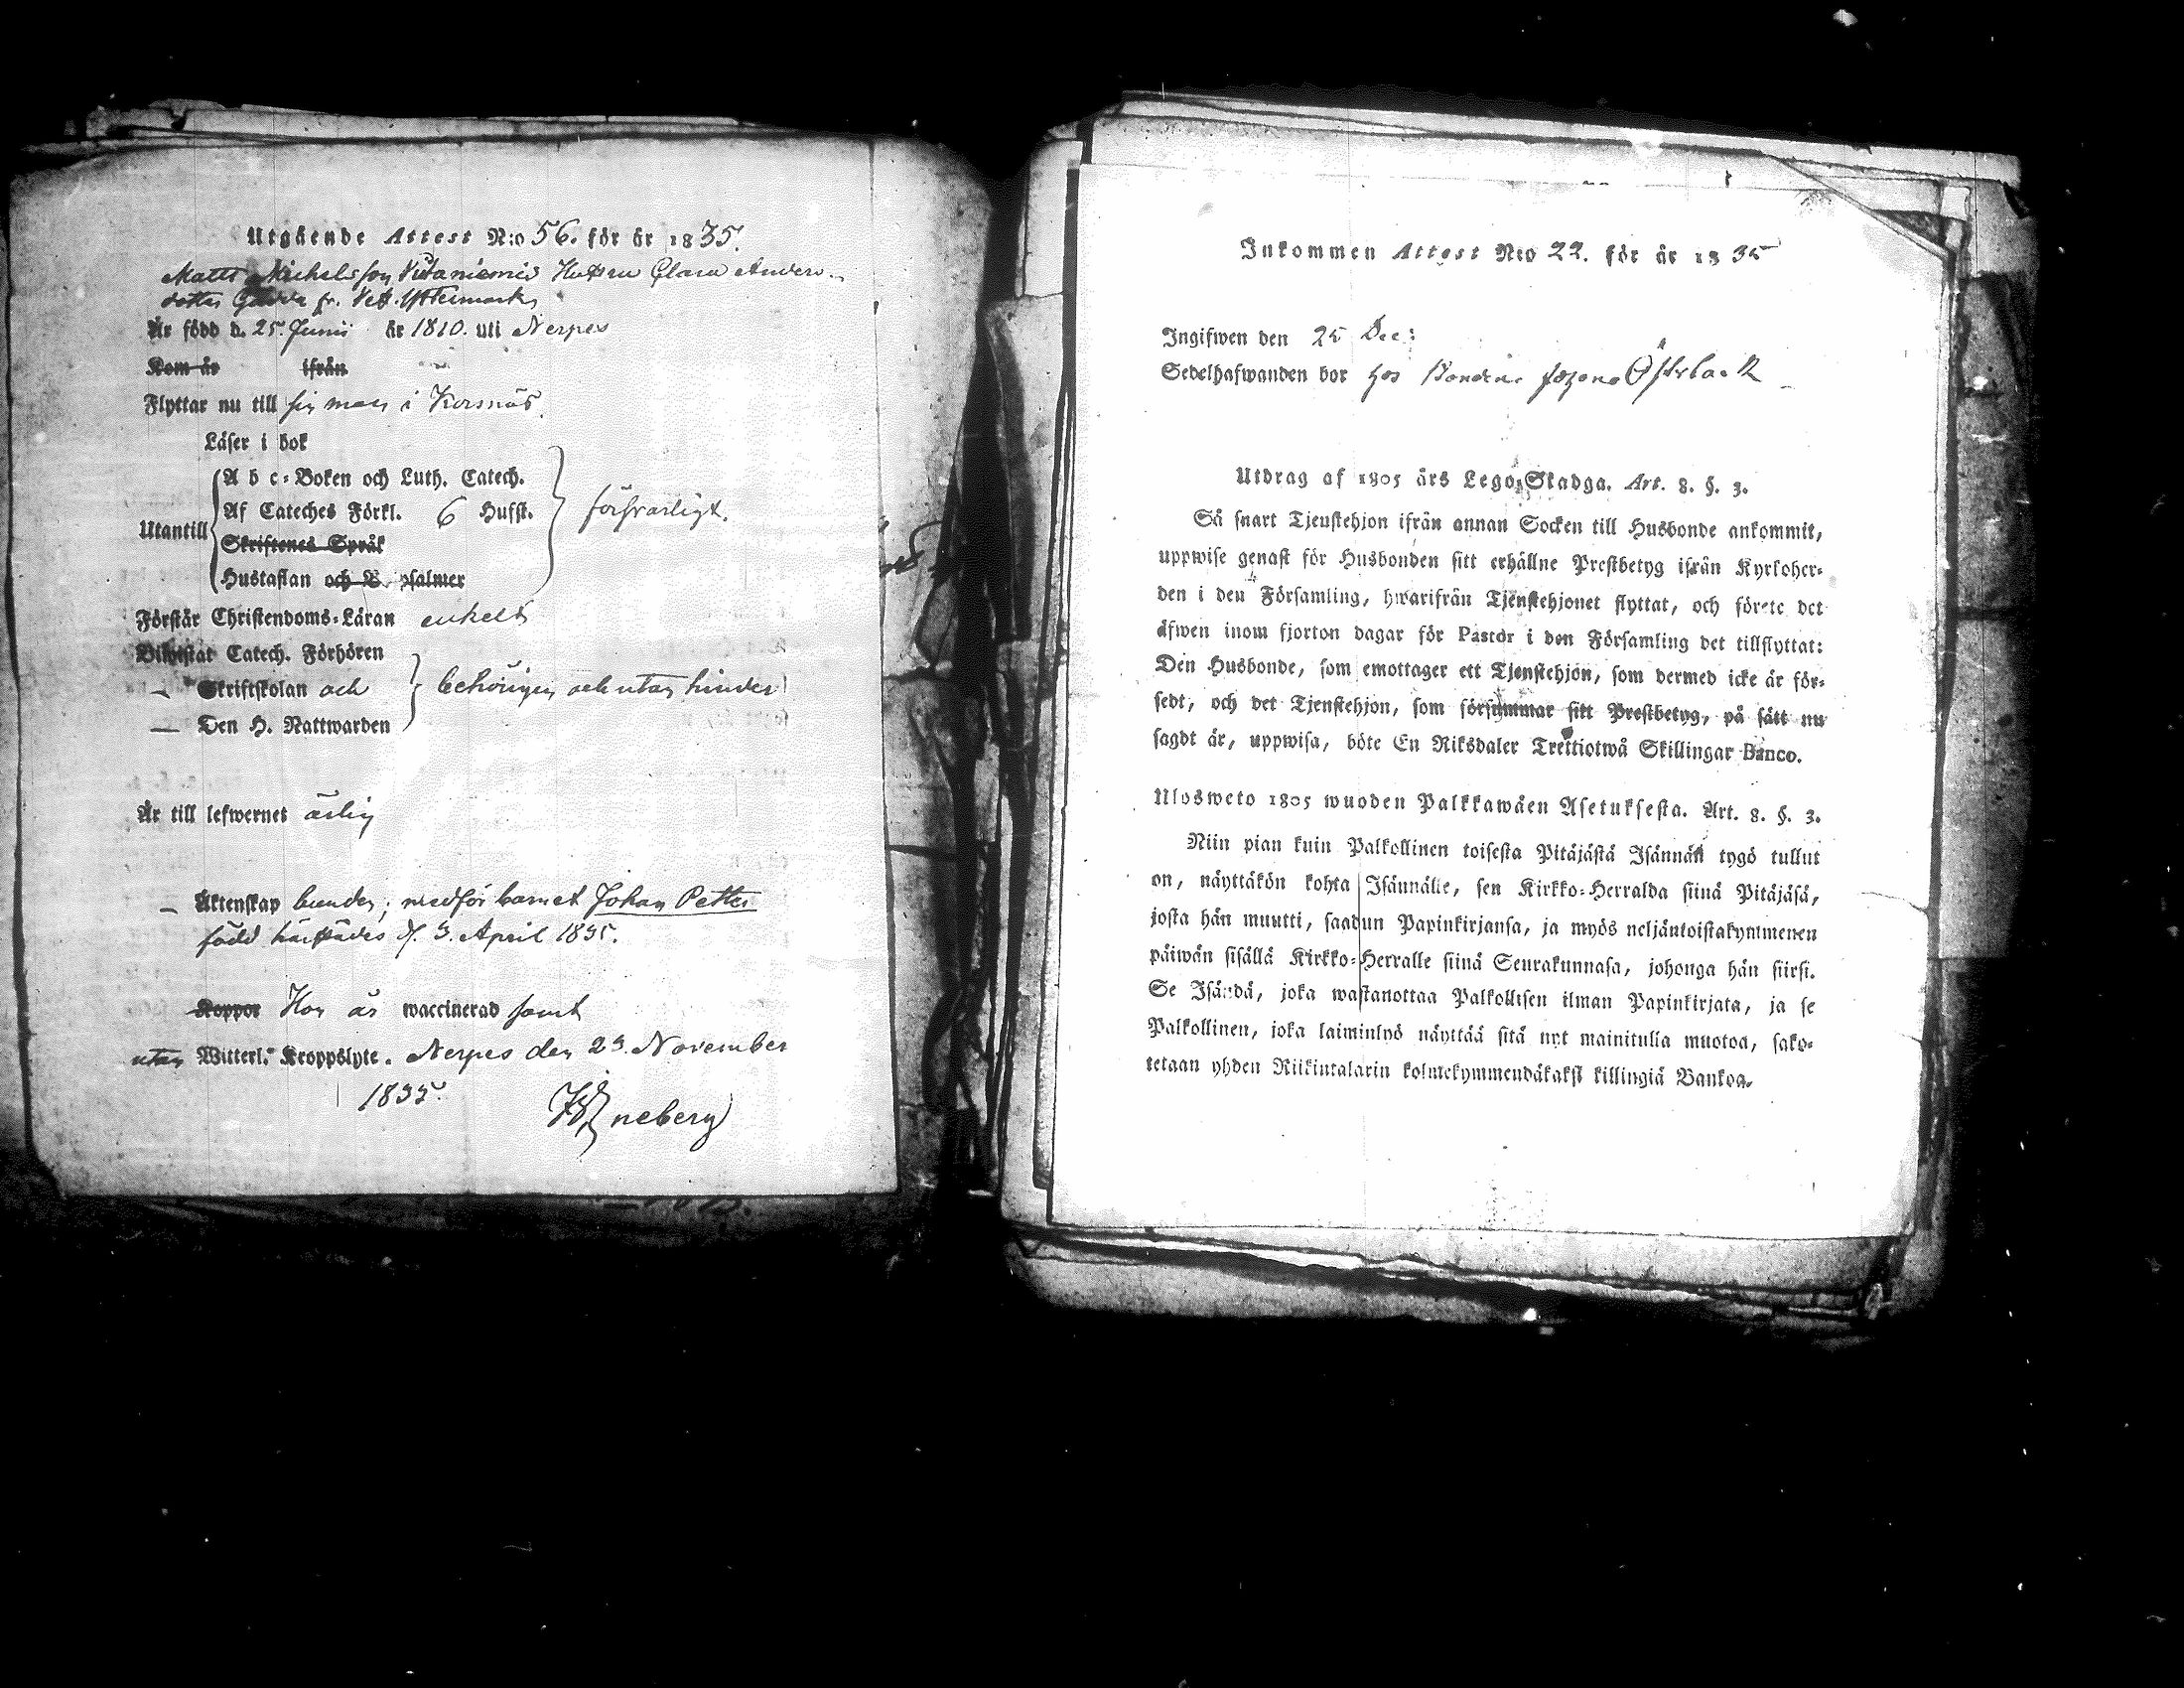 Utgående Attest N:o 56. för år 1835.
Matts Michelsson Hustru Clara Anders-
dotter fr. Yttermark
Är född d. 25. Junii år 1810. uti Nerpes
Kom år ifrån
Flyttar nu till sin man i Korsnäs.
Läser i bok
A b c-Boken och Luth. Catech.
Utantill Af Cateches Förkl. 6 Hufst. försvarligt.
Skriftenes Språk
Hustaflan och B. psalmer
Förstår Christendoms-Läran enkelt
Biwistat Catech. Förhören
— Skriftskolan och behörigen och utan hinder
— Den H. Nattwarden
Är till lefwernet ärlig
— Äktenskap bunden; medför barnet Johan Petter
född härstädes d. 3. April 1835.
Koppor Hon är waccinerad samt
utan Witterl. Kroppslyte. Nerpes den 23. November
1835.
neberg
Inkommen Attest N:o 22. för år 1835
Ingifwen den 25 Dec:
Sedelhafwanden bor hos Bonden Österback
Utdrag af 1805 års Lego-Stadga. Art. 8. §. 3.
Så snart Tjenstehjon ifrån annan Socken till Husbonde ankommit,
uppwise genast för Husbonden sitt erhållne Prestbetyg ifrån Kyrkoher-
den i den Församling, hwarifrån Tjenstehjonet flyttat, och förete det
äfwen inom fjorton dagar för Pastor i den Församling det tillflyttat:
Den Husbonde, som emottager ett Tjenstehjon, som dermed icke är för-
sedt, och det Tjenstehjon, som försummar sitt Prestbetyg, på sätt nu
sagdt är, uppwisa, böte En Riksdaler Trettiotwå Skillingar Banco.
Ulosweto 1805 wuoden Palkkawäen Asetuksesta. Art. 8. §. 3.
Niin pian kuin Palkollinen toisesta Pitäjästä Isännän tygö tullut
on, näyttäkön kohta Isännälle, sen Kirkko-Herralda siinä Pitäjäsä,
josta hän muutti, saadun Papinkirjansa, ja myös neljäntoistakymmenen
päiwän sisällä Kirkko-Herralle siinä Seurakunnasa, johonga hän siirsi.
Se Isändä, joka wastanottaa Palkollisen ilman Papinkirjata, ja se
Palkollinen, joka laiminlyö näyttää sitä nyt mainitulla muotoa, sako-
tetaan yhden Riikintalarin kolmekymmendäkaksi killingiä Bankoa.